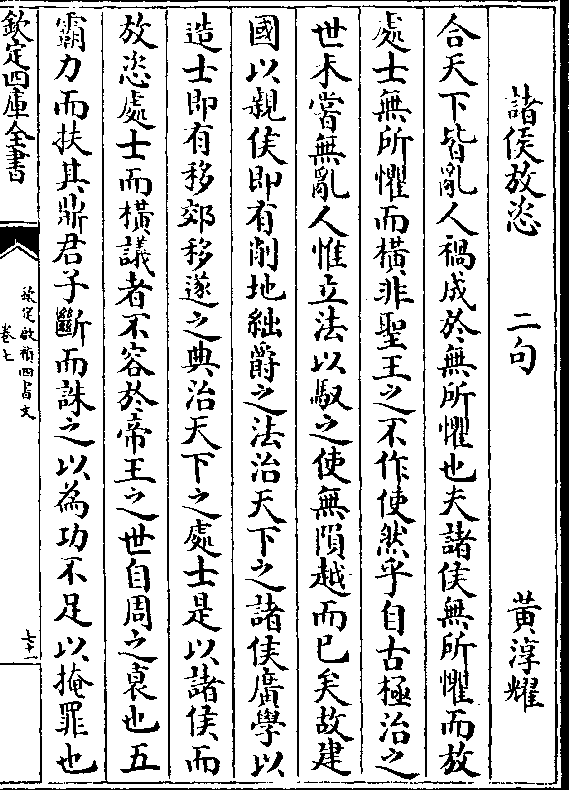 諸侯放恣　二句　黃淳耀
合天下皆亂人禍成於無所懼也夫諸侯無所懼而放
處士無所懼而橫非聖王之不作使然乎自古極治之
世未嘗無亂人惟立法以馭之使無隕越而已矣故建
國以親侯即有削地絀爵之法治天下之諸侯廣學以
造士即有移郊移遂之典治天下之處士是以諸侯而
放恣處士而橫議者不容於帝王之世自周之衰也五
霸力而扶其鼎君子斷而誅之以為功不足以掩罪也
欽定四庫全書
欽定啟禎四書文
卷七
七十一